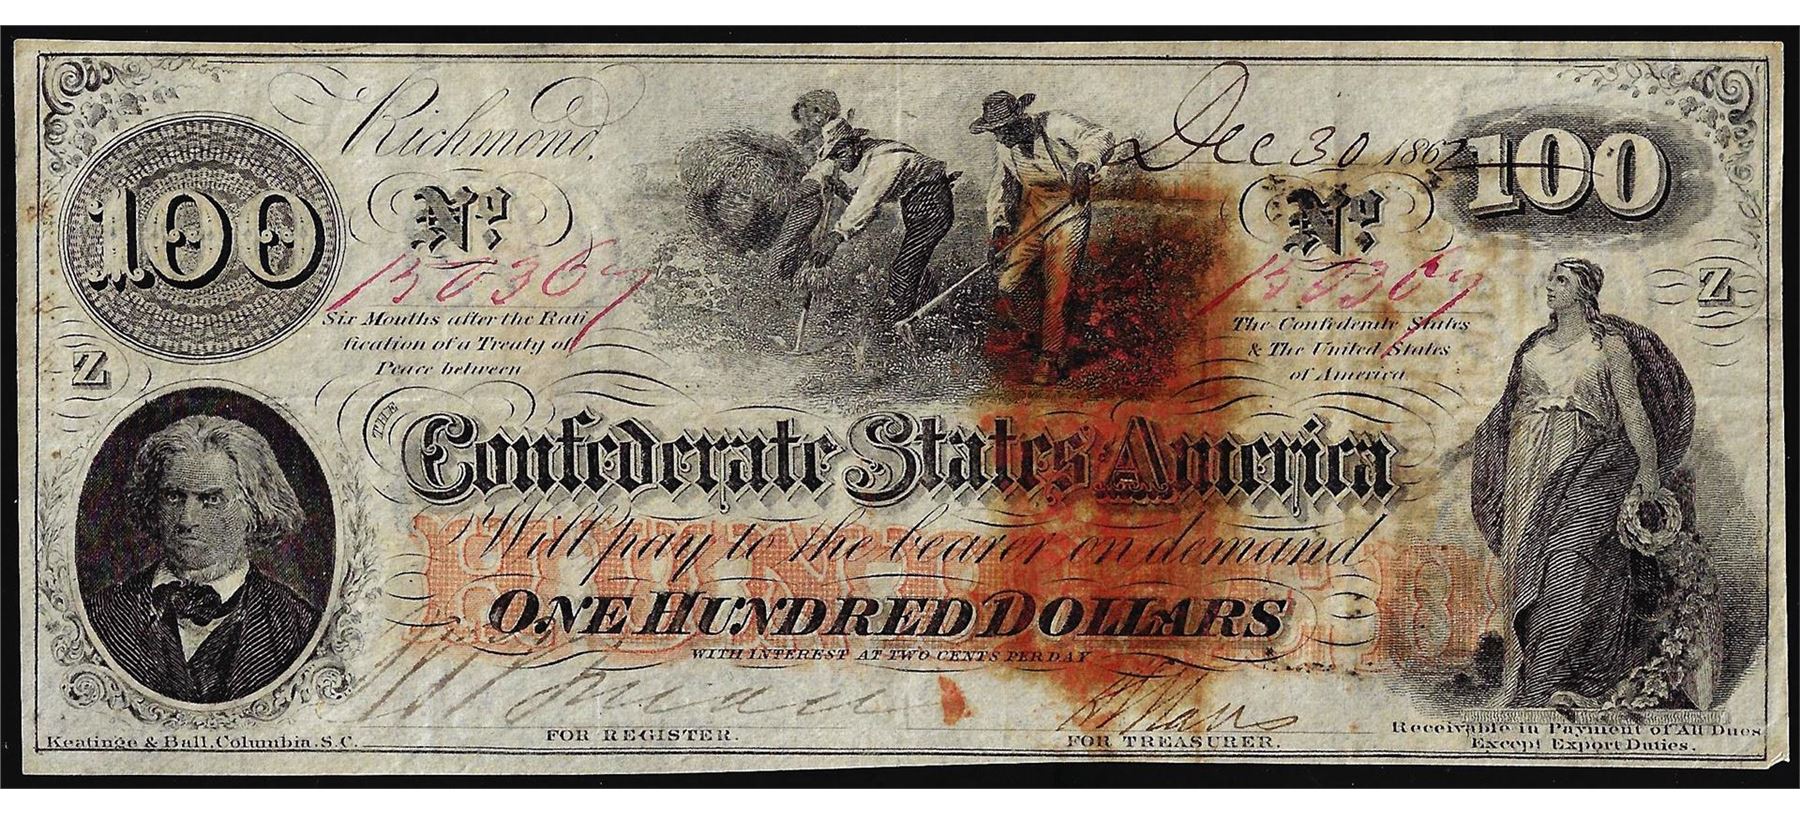 Richmond, Dec 30 1862
100 100
No. No.
150367 150367
Six Months after the Rati
fication of a Treaty of
Peace between
The Confederate States
& The United States
of America
Z Z
THE
Confederate States America
HUNDRED
Will pay to the bearer on demand
ONE HUNDRED DOLLARS
WITH INTEREST AT TWO CENTS PER DAY
FOR REGISTER.
FOR TREASURER.
Keatinge & Ball, Columbia, S.C.
Receivable in Payment of All Dues
Except Export Duties.